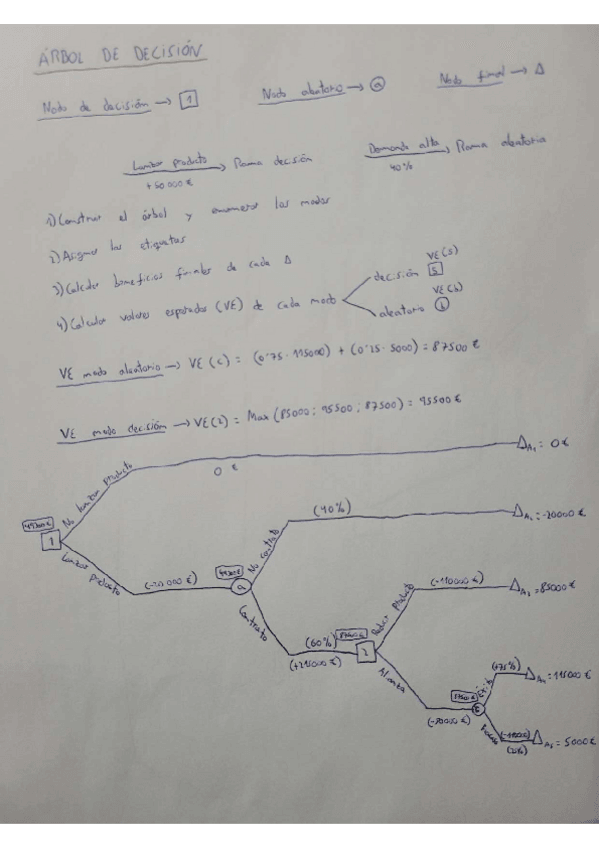 ÁRBOL DE DECISIÓN
Nodo de decisión → 1 Nodo aleatorio → a Nodo final → Δ
Lanzar producto → Rama decisión Demanda alta → Rama aleatoria
+50000 € 40%
1) Construir el árbol y enumerar los nodos
2) Asignar las etiquetas
3) Calcular beneficios finales de cada Δ
4) Calcular valores esperados (VE) de cada nodo
decisión 5 VE(5)
aleatorio b VE(b)
VE nodo aleatorio → VE(c) = (0'75 · 115000) + (0'25 · 5000) = 87500 €
VE nodo decisión → VE(2) = Max (85000; 95500; 87500) = 95500 €
No lanzar producto 0 € Δ = 0 €
1
Lanzar producto (-20000 €) a
No contrato (40%) Δ = -20000 €
Contrato (60%) 2
(+215000 €)
Reducir producto (-110000 €) Δ = 85000 €
(+75%) Δ = 115000 €
Δ = 5000 €